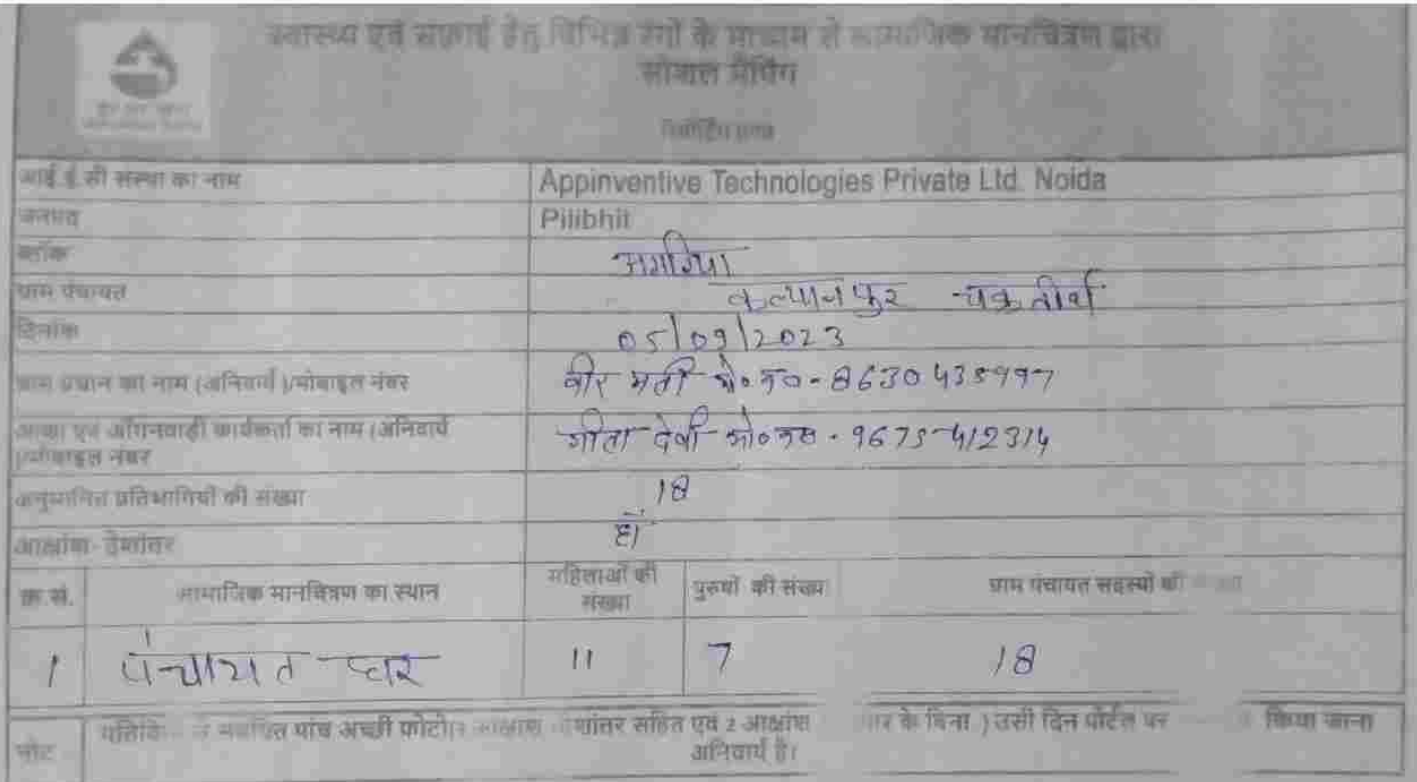 स्वास्थ्य एवं सफ़ाई हेतु विभिन्न रंगों के माध्यम से सामाजिक मानचित्रण द्वारा
सोशल मैपिंग
रिपोर्टिंग प्रपत्र
आई.ई.सी संस्था का नाम Appinventive Technologies Private Ltd. Noida
जनपद Pilibhit
ब्लॉक
ग्राम पंचायत कल्यानपुर चक्रतीर्थ
दिनांक 05/09/2023
ग्राम प्रधान का नाम (अनिवार्य)/मोबाइल नंबर वीर मती मो०न०-
आशा एवं आँगनवाड़ी कार्यकर्ता का नाम (अनिवार्य गीता देवी - 9675412314
)/मोबाइल नंबर
अनुमानित प्रतिभागियों की संख्या 18
आक्षांश- देशांतर हाँ
क्र.सं. सामाजिक मानचित्रण का स्थान महिलाओं की संख्या पुरुषों की संख्या ग्राम पंचायत सदस्यों की
1 पंचायत घर 11 7 18
नोट पांच अच्छी फोटो सहित एवं 2 आक्षांश के बिना ) उसी दिन पोर्टल पर किया जाना
अनिवार्य है।